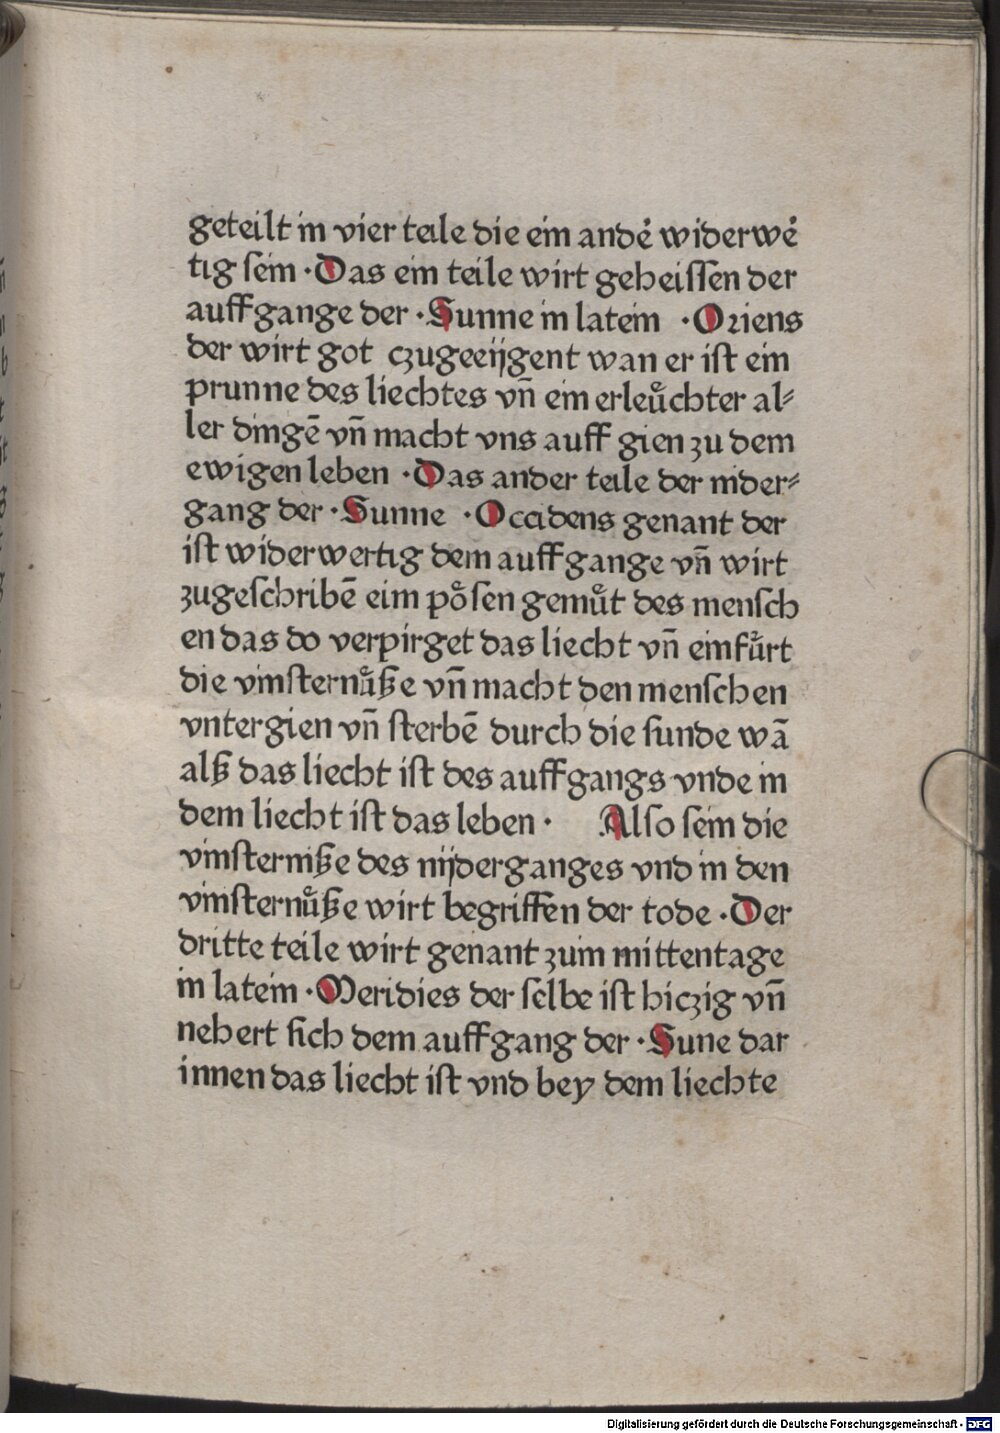 geteilt in vier teile die ein andeꝛ̉ widerweꝛ̉
tig sein ·Das ein teile wirt geheiſſen der
auffgange der ·Sunne in latein ·Oꝛiens
der wirt got czugeeijgent wan er iſt ein
prunne des liechtes vn̄ ein erleuͦchter al⸗
ler dingē vn̄ macht vns auff gien zu dem
ewigen leben ·Das ander teile der nider⸗
gang der ·Sunne ·Occidens genant der
iſt widerwertig dem auffgange vn̄ wirt
zugeſchribē eim poͤſen gemuͤt des menſch
en das do verpirget das liecht vn̄ einfuͤrt
die vinſternuͤße vn̄ macht den menſchen
vntergien vn̄ ſterbē durch die ſunde wā
alß das liecht iſt des auffgangs vnde in
dem liecht iſt das leben · Alſo ſein die
vinſterniße des nijderganges vnd in den
vinſternuͤße wirt begriffen der tode ·Der
dritte teile wirt genant zum mittentage
in latein ·Meridies der ſelbe iſt hiczig vn̄
nehert ſich dem auffgang der ·Sune dar
innen das liecht iſt vnd bey dem liechte
Digitalisierung gefördert durch die Deutsche Forschungsgemeinschaft - DFG